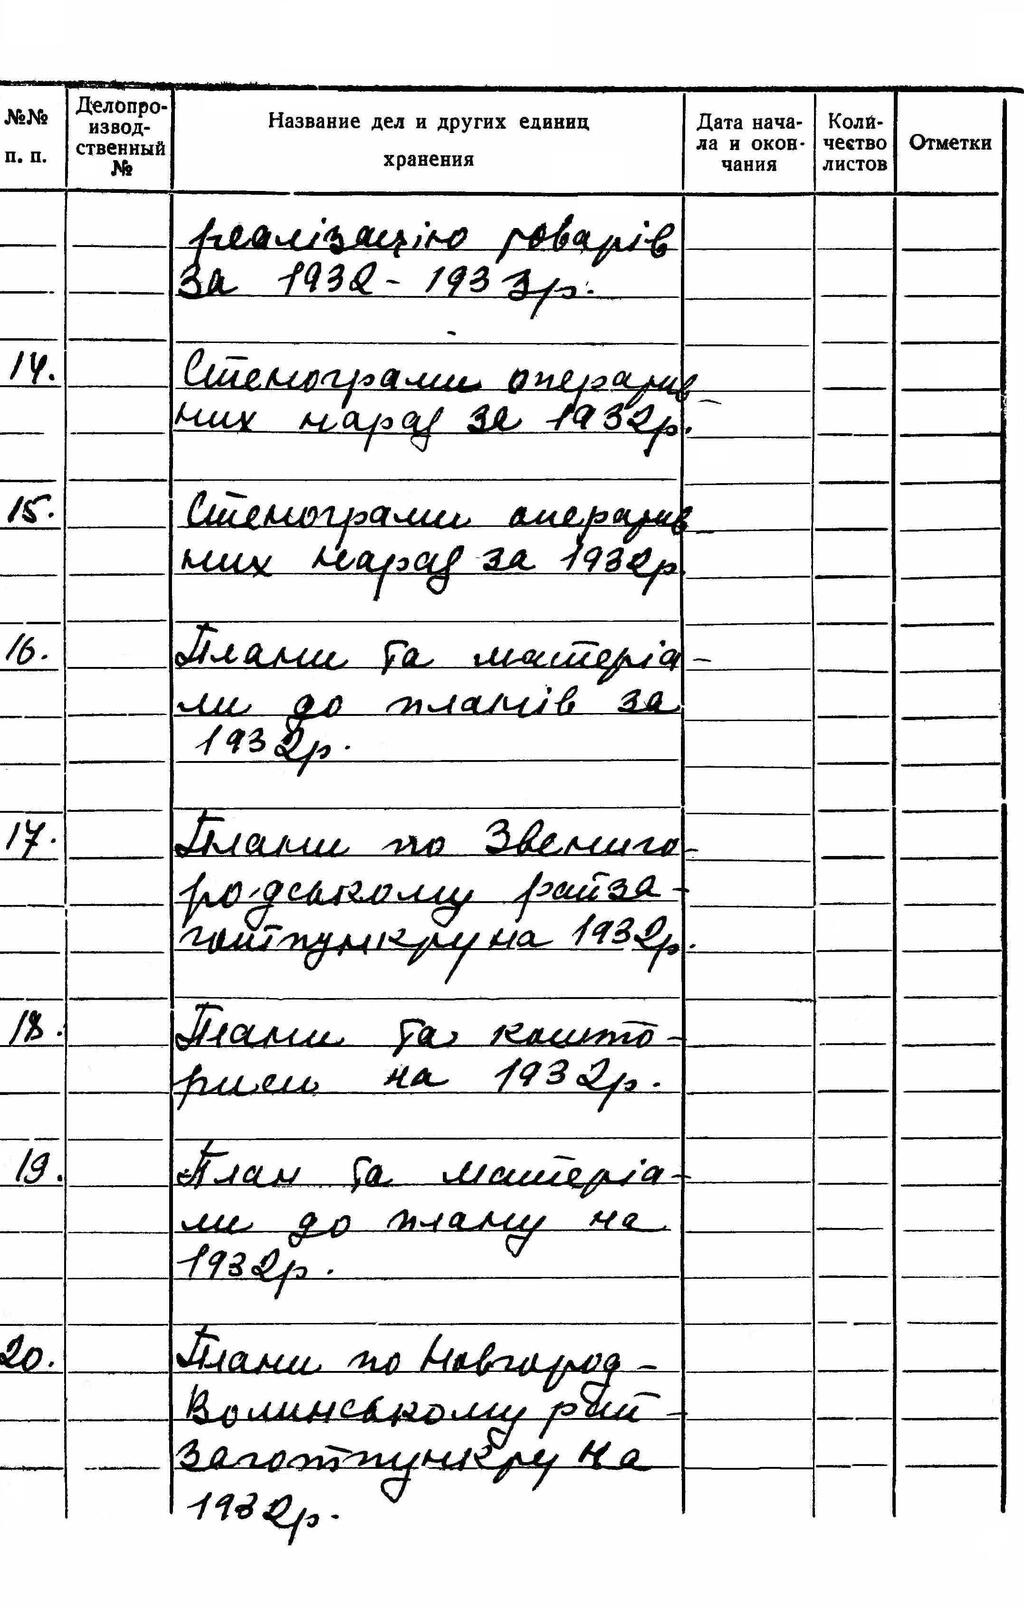 №№ п. п.
Делопро-
извод-
ственный
№
Название дел и других единиц
хранения
Дата нача-
ла и окон-
чания
Коли-
чество
листов
Отметки
реалізацію товарів
за 1932 - 1933р.
14.
Стенограми оператив
них нарад за 1932р.
15.
Стенограми оператив
них нарад за 1932р
16.
Плани та матеріа-
ли до планів за
1932р.
17.
Плани по Звениго-
родському райза-
готпункту на 1932р.
18.
Плани та кошто-
риси на 1932р.
19.
План та матеріа-
ли до плану на
1932р.
20.
Плани по Новгород-
Волинському рай-
заготпункту на
1932р.